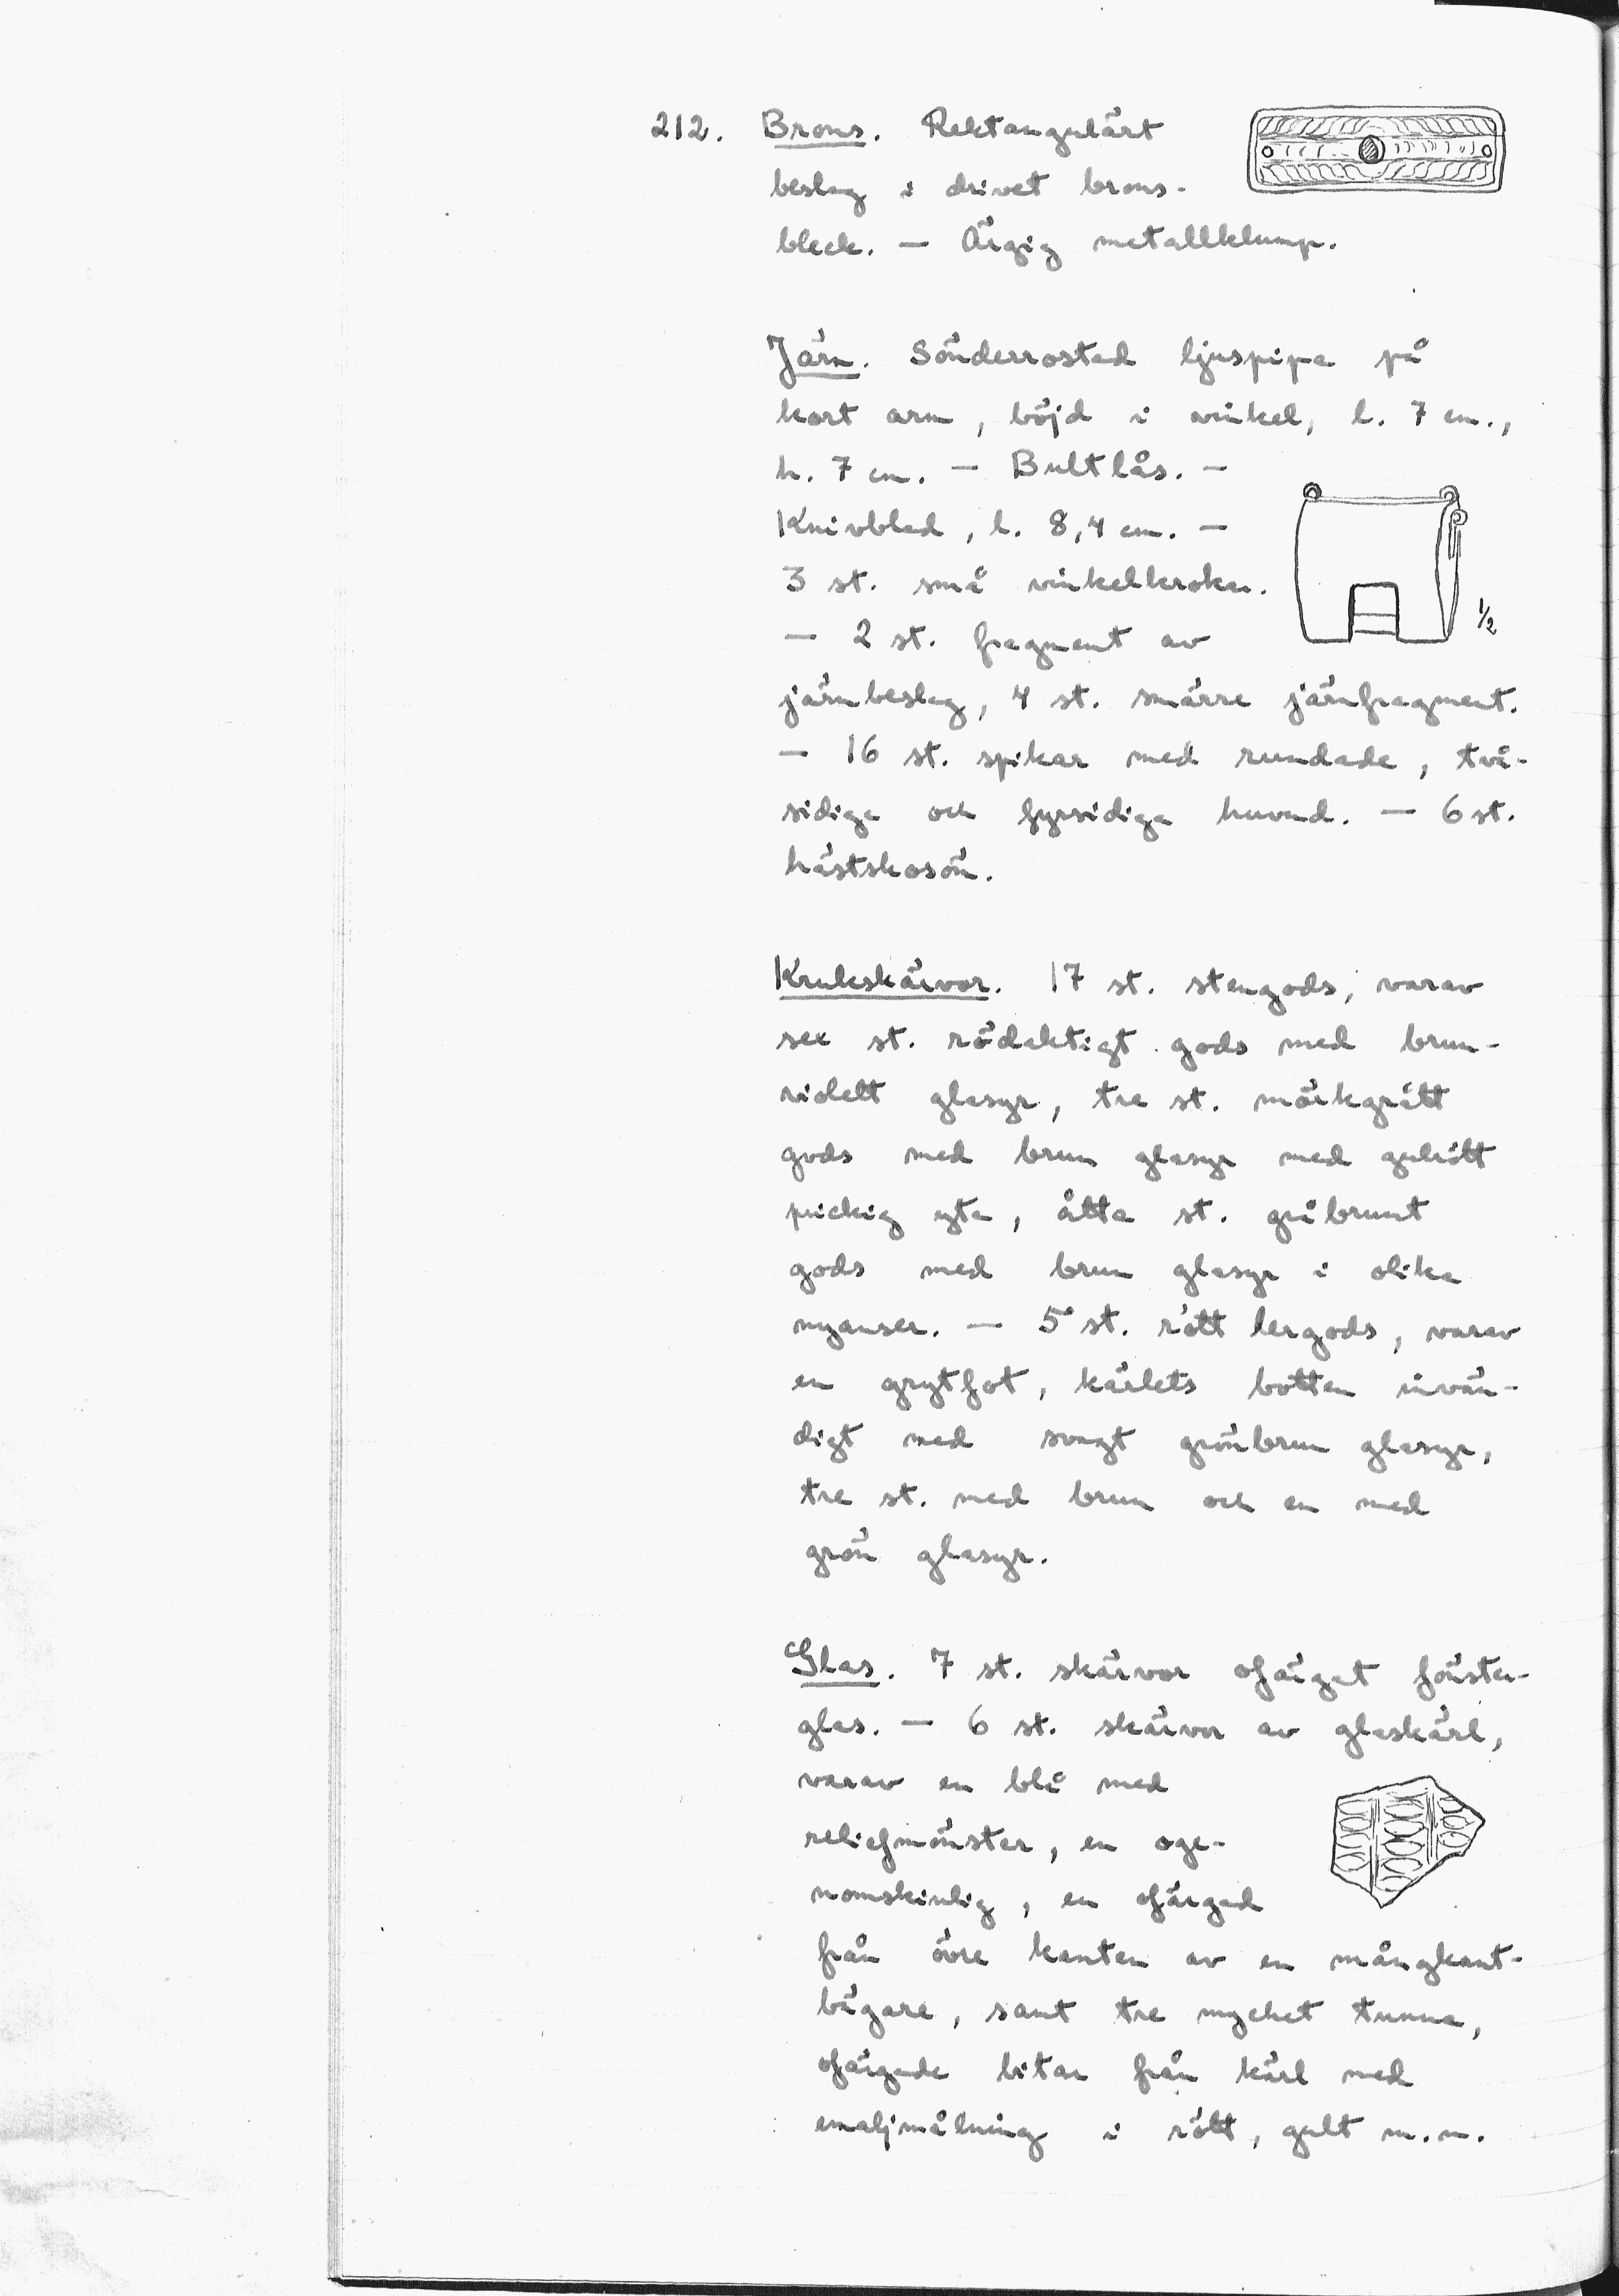 212. Brons. Rektangulärt
beslag i drivet brons-
bleck. — Ärgig metallklump.
Järn. Sönderrostad ljuspipa på
kort arm, böjd i vinkel, l. 7 cm.,
h. 7 cm. — Bultlås. —
Knivblad, l. 8,4 cm. —
3 st. små vinkelkrokar.
1/2
— 2 st. fragment av
järnbeslag, 4 st. smärre järnfragment.
— 16 st. spikar med rundade, två-
sidiga och fyrsidiga huvud. — 6 st.
hästskosöm.
Krukskärvor. 17 st. stengods, varav
sex st. rödaktigt gods med brun-
violett glasyr, tre st. mörkgrått
gods med brun glasyr med gulrött
prickig yta, åtta st. gråbrunt
gods med brun glasyr i olika
nyanser. — 5 st. rött lergods, varav
en grytfot, kärlets botten invän-
digt med svagt grönbrun glasyr,
tre st. med brun och en med
grön glasyr.
Glas. 7 st. skärvor ofärgat fönster-
glas. — 6 st. skärvor av glaskärl,
varav en blå med
reliefmönster, en oge-
nomskinlig, en ofärgad
från övre kanten av en mångkant-
bägare, samt tre mycket tunna,
ofärgade bitar från kärl med
emaljmålning i rött, gult m.m.